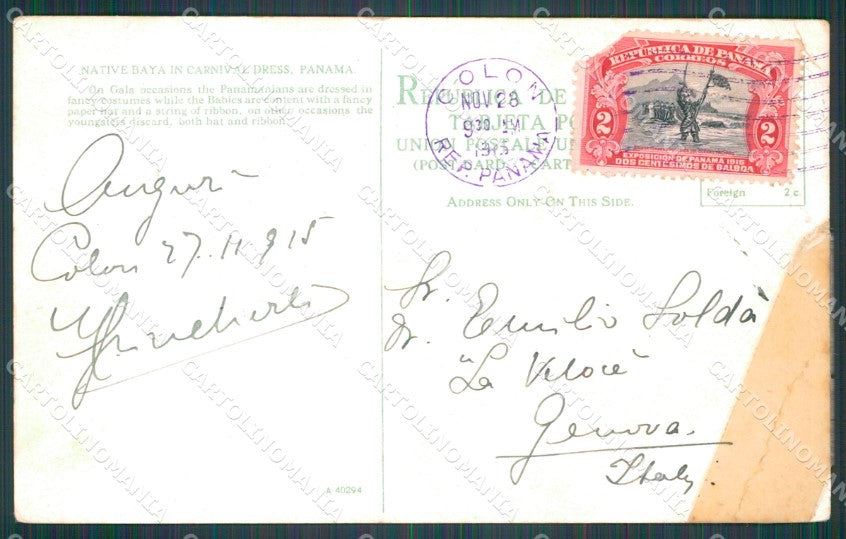 NATIVE BAYA IN CARNIVAL DRESS, PANAMA.
On Gala occasions the Panamanians are dressed in
fancy costumes while the Babies are content with a fancy
paper hat and a string of ribbon, on other occasions the
youngsters discard, both hat and ribbon.
Auguri
Colon 27.11.915
A 40294
COLON
NOV 28
9 30 AM
1915
REP. PANAMA
REPÚBLICA DE
TARJETA PO
UNION POSTALE UN
(POST CARD CART
ADDRESS ONLY ON THIS SIDE.
REPÚBLICA DE PANAMA
CORREOS
2 2
EXPOSICION DE PANAMA 1915
DOS CENTESIMOS DE BALBOA
Foreign 2 c.
Emilio Soldà
"La Veloce"
Genova.
Italy
CARTOLINOMANIA